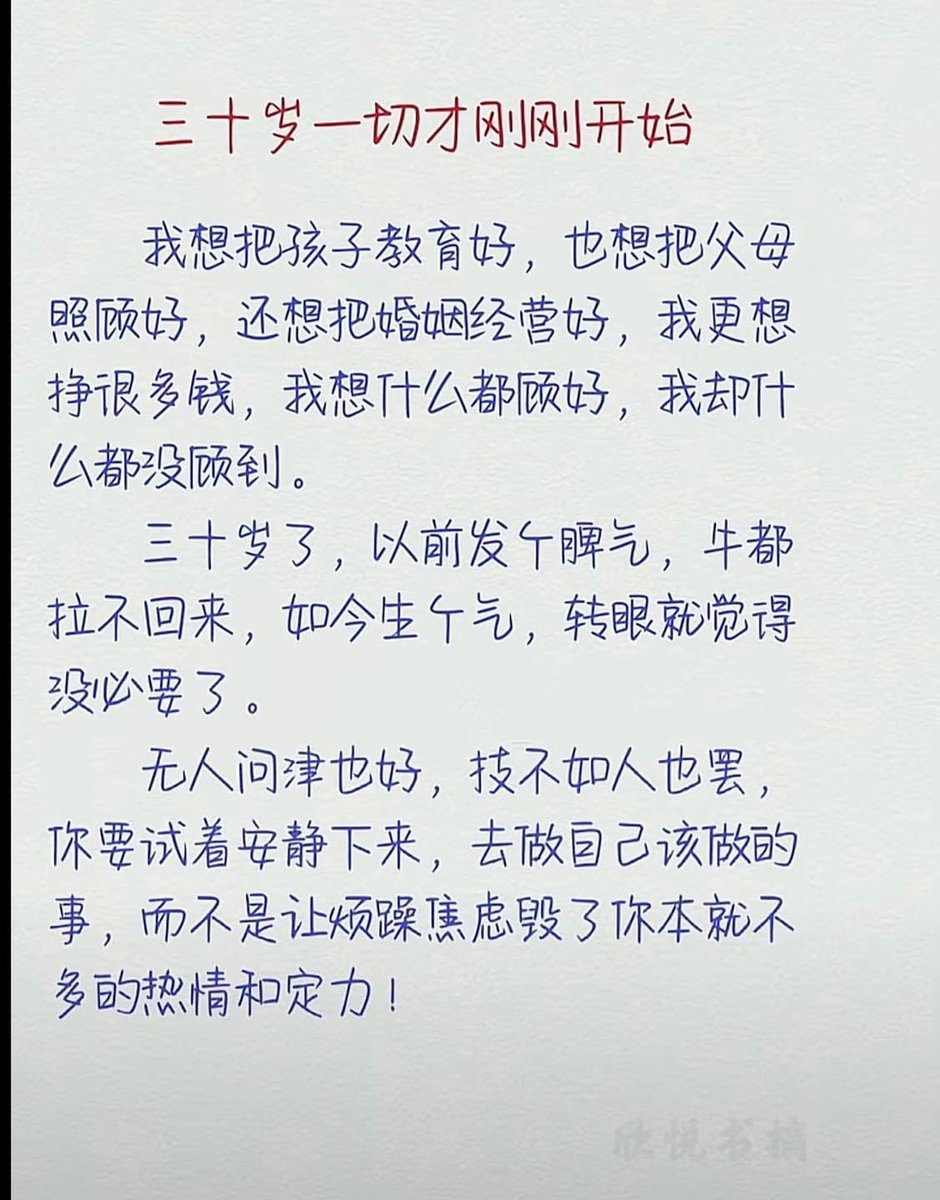 三十岁一切才刚刚开始
我想把孩子教育好，也想把父母
照顾好，还想把婚姻经营好，我更想
挣很多钱，我想什么都顾好，我却什
么都没顾到。
三十岁了，以前发个脾气，牛都
拉不回来，如今生个气，转眼就觉得
没必要了。
无人问津也好，技不如人也罢，
你要试着安静下来，去做自己该做的
事，而不是让烦躁焦虑毁了你本就不
多的热情和定力！
欣悦书摘